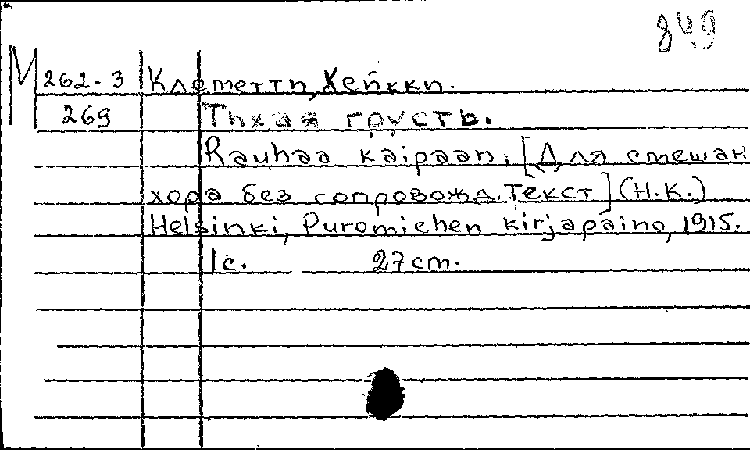 849
М 262-3 Клеметти, Хейкки.
269 Тихая грусть.
Rauhaa kaipaan. [Для смешан
хора без сопровожд. Текст] (H.K.)
Helsinki, Puromiehen kirjapaino, 1915.
1с. 27 cm.